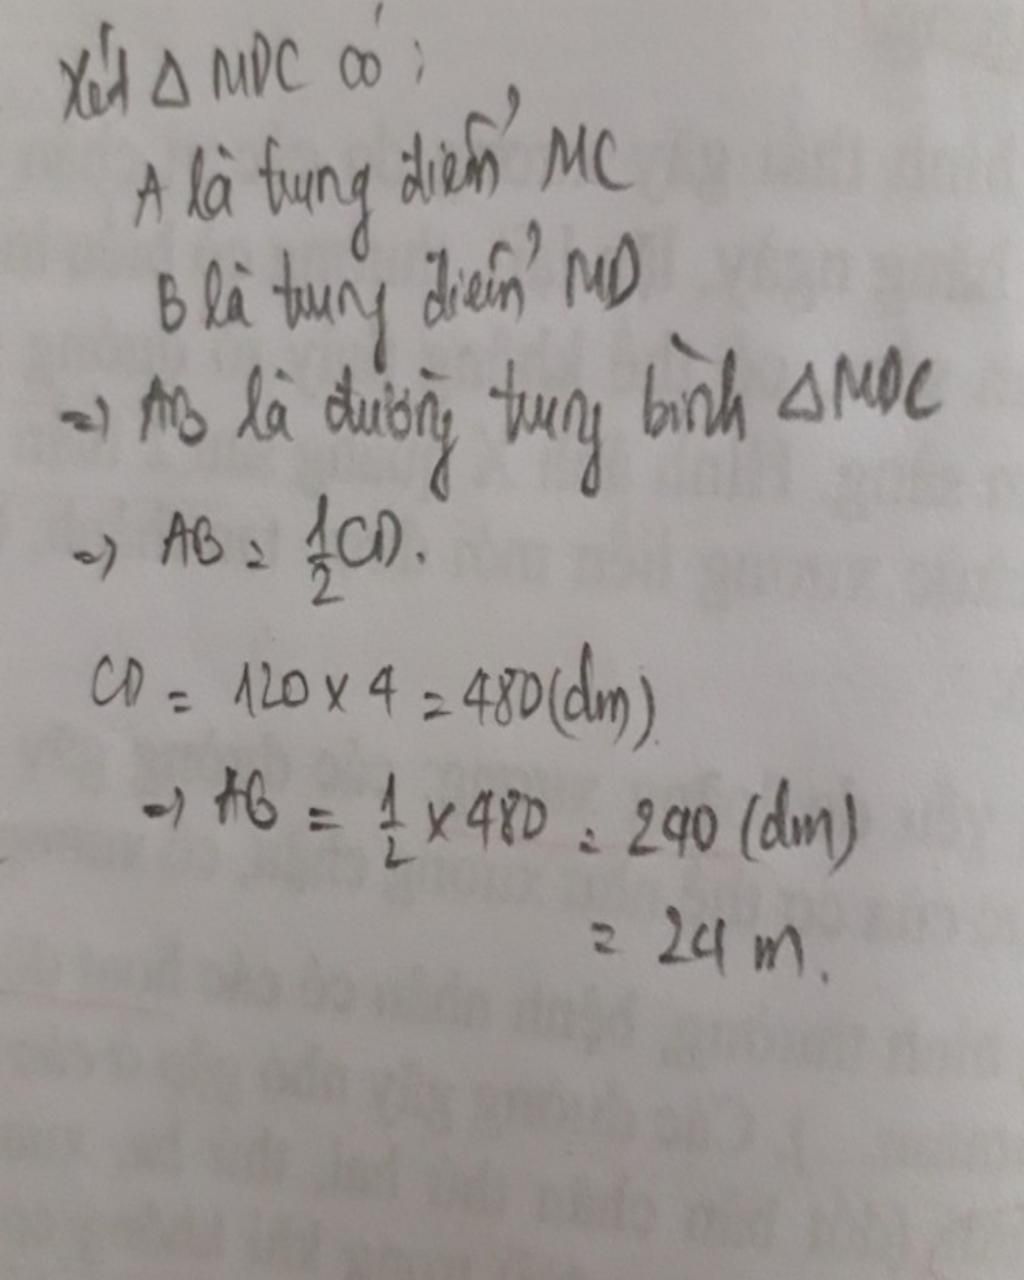 Xét Δ MDC có:
A là trung điểm MC
B là trung điểm MD
=> AB là đường trung bình Δ MDC
=> AB = 1/2 CD.
CD = 120 x 4 = 480 (dm).
=> AB = 1/2 x 480 = 240 (dm)
= 24 m.